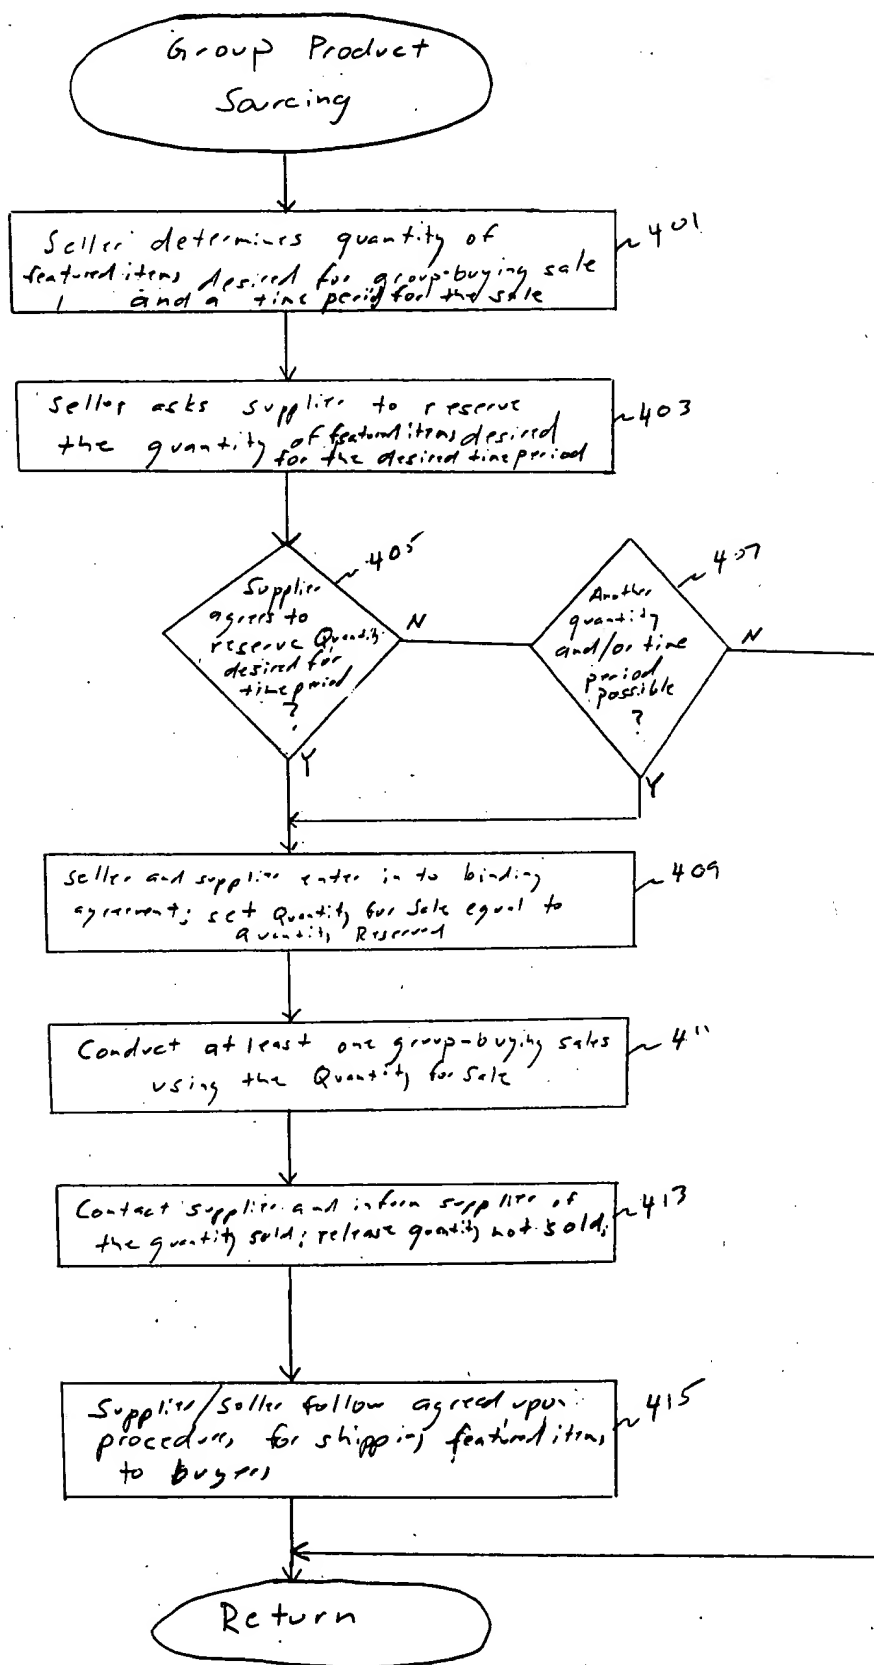 Group Product
Sourcing
Seller determines quantity of
featured items desired for group-buying sale
and a time period for the sale
401
Seller asks supplier to reserve
the quantity of featured items desired
for the desired time period
403
Supplier
agrees to
reserve Quantity
desired for
time period
?
405
N
Y
Another
quantity
and/or time
period
possible
?
407
N
Y
Seller and supplier enter in to binding
agreement; set Quantity for Sale equal to
Quantity Reserved
409
Conduct at least one group-buying sales
using the Quantity for Sale
411
Contact supplier and inform supplier of
the quantity sold; release quantity not sold;
413
Supplier/Seller follow agreed upon
procedures for shipping featured items
to buyers
415
Return